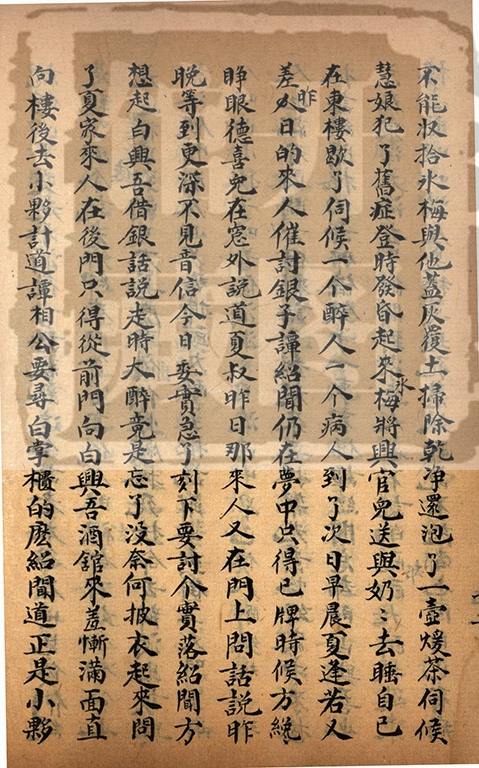 不能收拾氷梅與他蓋灰覆土掃除乾净還泡了一壺煖茶伺候
慧娘犯了舊症登時發昏起來氷梅將興官兒送與奶〻去睡自己
在東樓歇了伺候一个醉人一个病人到了次日早晨夏逢若又
差昨日的來人催討銀子譚紹聞仍在夢中只得已牌時候方纔
睁眼德喜兒在窓外説道夏叔昨日那來人又在門上問話説昨
晚等到更深不見音信今日委實急了刻下要討个實落紹聞方
想起白興吾借銀話説走時大醉竟是忘了没奈何披衣起來問
了夏家來人在後門只得從前門向白興吾酒舘來羞慚滿面直
向樓後去小夥計道譚相公要尋白掌櫃的麽紹聞道正是小夥